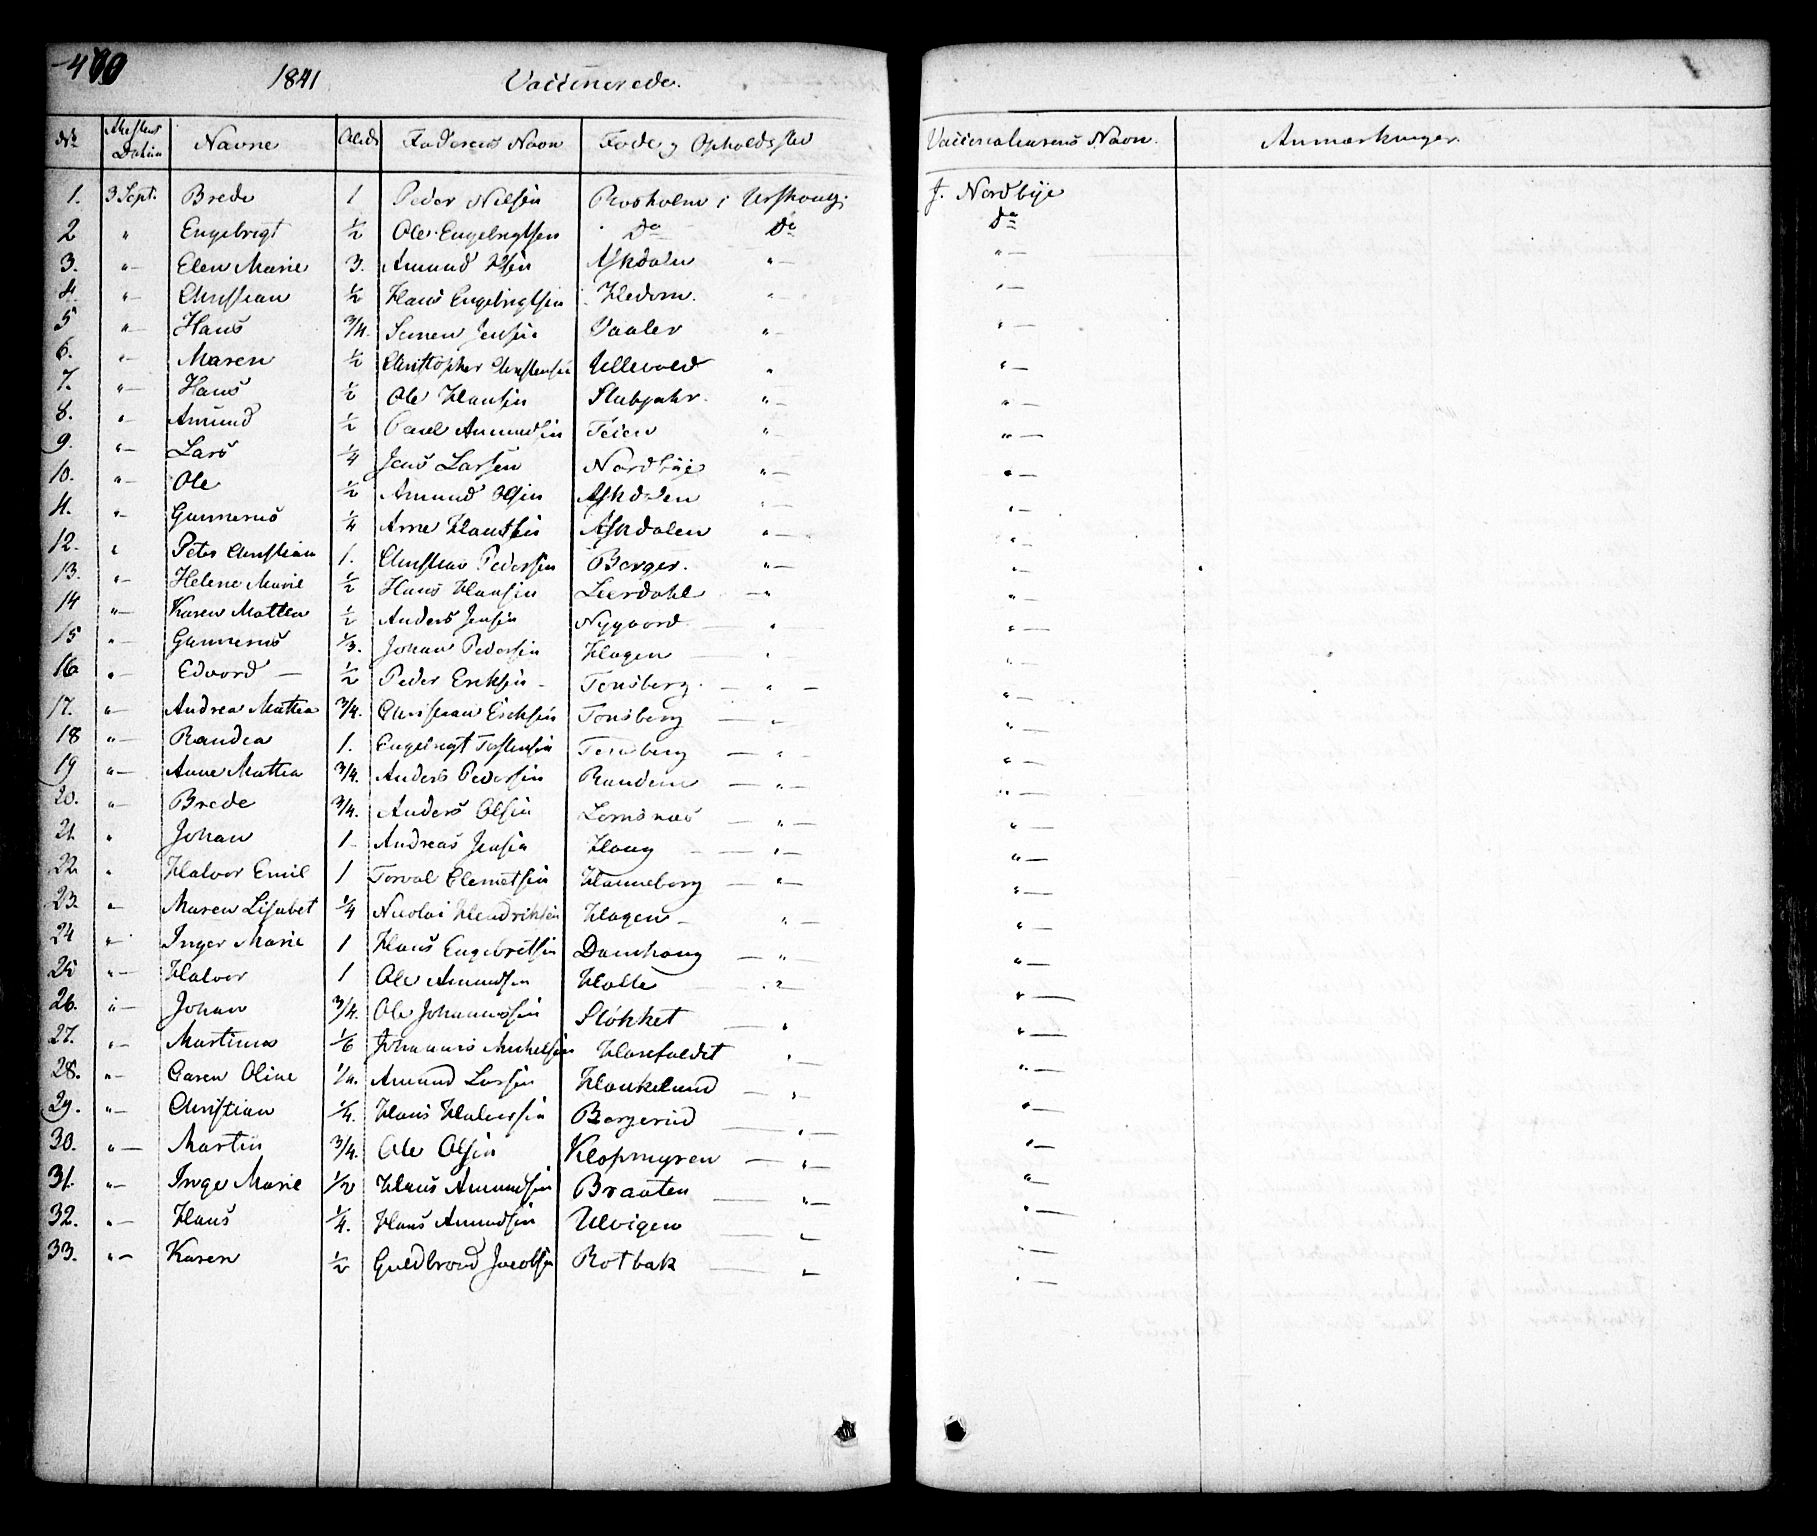 1841 Vaccinerede.
No Attestens Datum Navne Alder Faderens Navn Føde og Opholdssted Vaccinateurens Navn. Anmærkninger.
1. 3 Sept. Brede 1 Peder Nilsen Rosholm i Urskoug. J. Nordbÿe
2 " Engebrigt 1/2 Ole Engebrigtsen Do Do Do
3. "— Elen Marie 3. Amund Olsen Askdalen "— "—
4. "— Christian 1/2 Hans Engebrigtsen Hedom. " "—
5 "— Hans 3/4. Semen Jensen Vaaler "— "—
6. "— Maren 1/2 Christopher Christensen Ullevold " "—
7. "— Hans 1/2 Ole Hansen "— "—
8. " Amund 1/2 Paul Amundsen Teien "— "—
9. "— Lars 1/4 Jens Larsen Nordbÿe "— "—
10. "— Ole 1/2 Amund Olsen Askdalen "— "—
11. "— Gunnerus 1/4 Arne Hansen Askdalen "— "—
12. " Peter Christian 1. Christian Pedersen Berger. "— "—
13. "— Helene Marie 1/2 Hans Hansen Leerdahl —" "—
14 "— Karen Mathea 1/2 Anders Jensen Nygaard — " "—
15 "— Gunnerus 1/3. Johan Pedersen Hagen — " "—
16 "— Edvard — 1/2 Peder Eriksen - Tonsberg. — " — "—
17. "— Andrea Mathea 3/4. Christian Eriksen Tonsberg — " "—
18 "— Randea 1. Engebrigt Tostensen Tonsberg — " "—
19 "— Anne Mathea 3/4. Anders Pedersen Randem — "— "—
20. "— Brede 3/4. Anders Olsen Lomsnæs — "— "—
21. " Johan 1 - Andreas Jensen Haug — "— "—
22 " Halvor Emil 1 Torval Clemetsen Hanneborg — "— "—
23. "— Maren Lisabet 1/4 Nicolai Hendriksen Hagen — "— "—
24 "— Inger Marie 1 Hans Engebretsen Damhaug — "— "—
25 "— Halvor 1 Ole Amundsen Holle — "— "—
26. "— Johan 3/4. Ole Johannessen Støkket — " "—
27. "— Martinus 1/6 Johannis Michelsen Harefaldet "— "—
28. "— Caren Oline 1/4. Amund Larsen Haukelund — "— "—
29. "— Christian 1/4. Hans Halvorsen Bergerud — "— "—
30. "— Martin 3/4. Ole Olsen Klopmyren — "— "—
31. "— Inge Marie 1/2 Hans Amundsen Braaten — "— "—
32. "— Hans 1/4. Hans Amundsen Ulvigen "— "—
33. "— Karen 1/2 Guldbrand Jacobsen Rotbak — "— "—